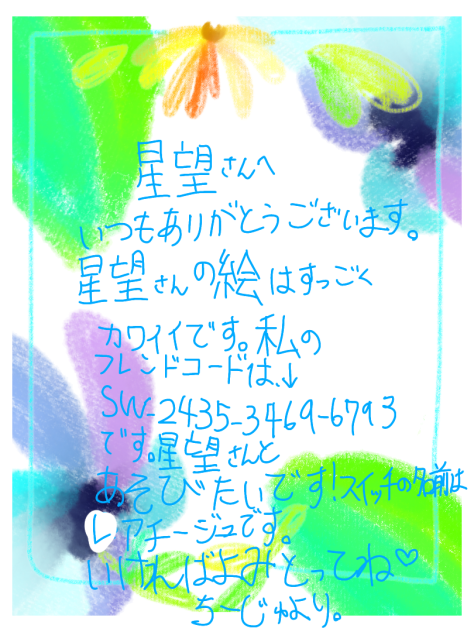 星望さんへ
いつもありがとうございます。
星望さんの絵はすっごく
カワイイです。私の
フレンドコードは、↓
SW-2435-3469-6793
です。星望さんと
あそびたいです!スイッチの名前は
レアチージュです。
いければよみとってね♡
ちーじゅより。